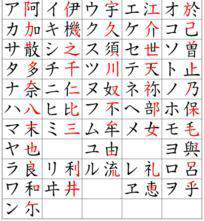 ア阿 イ伊 ウ宇 エ江 オ於
カ加 キ機 ク久 ケ介 コ己
サ散 シ之 ス須 セ世 ソ曽
タ多 チ千 ツ川 テ天 ト止
ナ奈 ニ仁 ヌ奴 ネ祢 ノ乃
ハ八 ヒ比 フ不 ヘ部 ホ保
マ末 ミ三 ム牟 メ女 モ毛
ヤ也 ユ由 ヨ與
ラ良 リ利 ル流 レ礼 ロ呂
ワ和 ヰ井 ヱ恵 ヲ乎
ン尔